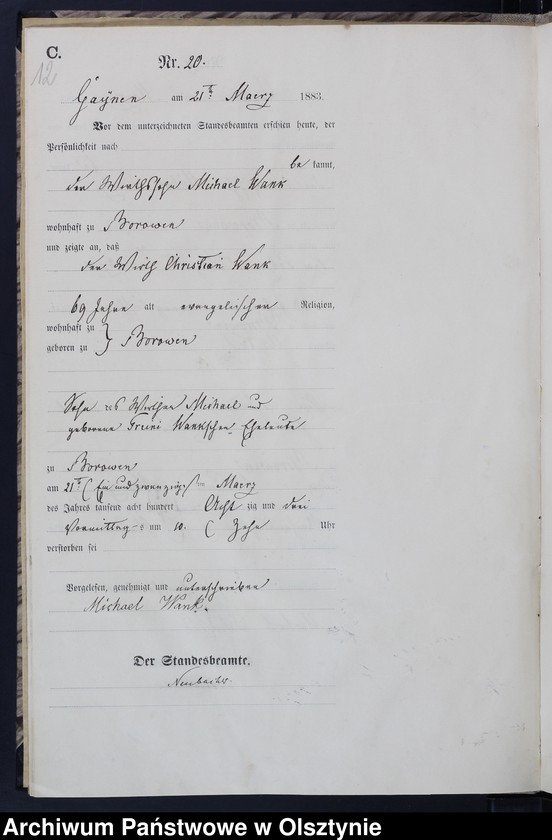 C.
12
Nr. 20.
Gaynen am 21ten Maerz 1883.
Vor dem unterzeichneten Standesbeamten erschien heute, der
Persönlichkeit nach
be kannt,
den Wirthssohn Michael Wank
wohnhaft zu Borowen
und zeigte an, daß
der Wirth Christian Wank
69 Jahre alt evangelischer Religion,
wohnhaft zu
geboren zu } Borowen
Sohn des Wirthen Michael und
geborene Wankschen Eheleute
zu Borowen
am 21ten (Ein und zwanzigsten Maerz
des Jahres tausend acht hundert Acht zig und drei
Vormittag s um 10. ( Zehn Uhr
verstorben sei
Vorgelesen, genehmigt und unterschrieben
Michael Wank.
Der Standesbeamte.
Archiwum Państwowe w Olsztynie